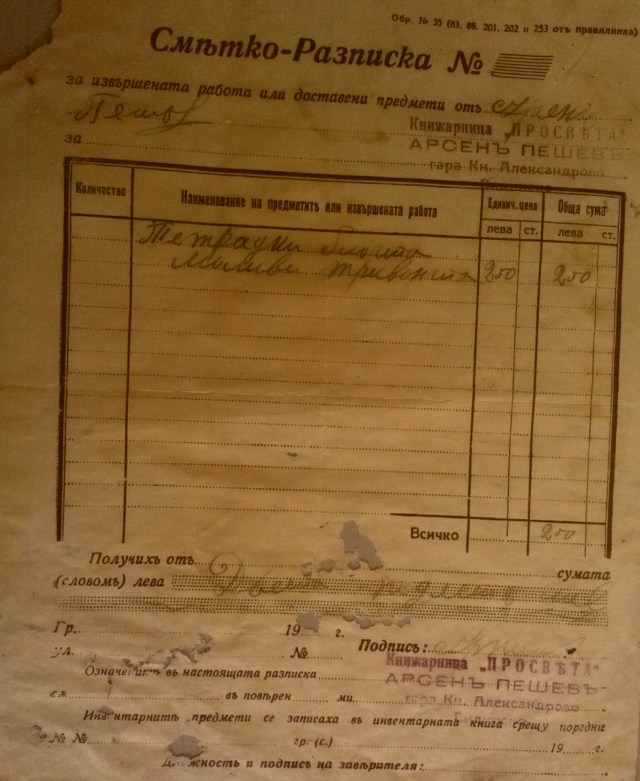 Обр. № 35 (83, 88, 201, 202 и 253 отъ правилника)
Смѣтко-Разписка №
за извършената работа или доставени предмети отъ
Пешев
Книжарница „ПРОСВѢТА“
за
АРСЕНЪ ПЕШЕВЪ
гара Кн. Александрово
Количество
Наименование на предметитѣ или извършената работа
Единич. цена
Обща сума
лева ст. лева ст.
Тетрадки
Моливи 250 250
Всичко 250
Получихъ отъ сумата
(словомъ) лева Двеста
Гр. 19 г.
Подпись:
ул. №
Книжарница „ПРОСВѢТА“
АРСЕНЪ ПЕШЕВЪ
гара Кн. Александрово
въ настоящата разписка
въ повѣрен ми
Инвентарнитѣ предмети се записаха въ инвентарната книга срещу поредни
№ № гр. (с.) 19 г.
Длъжность и подпись на завѣрителя: